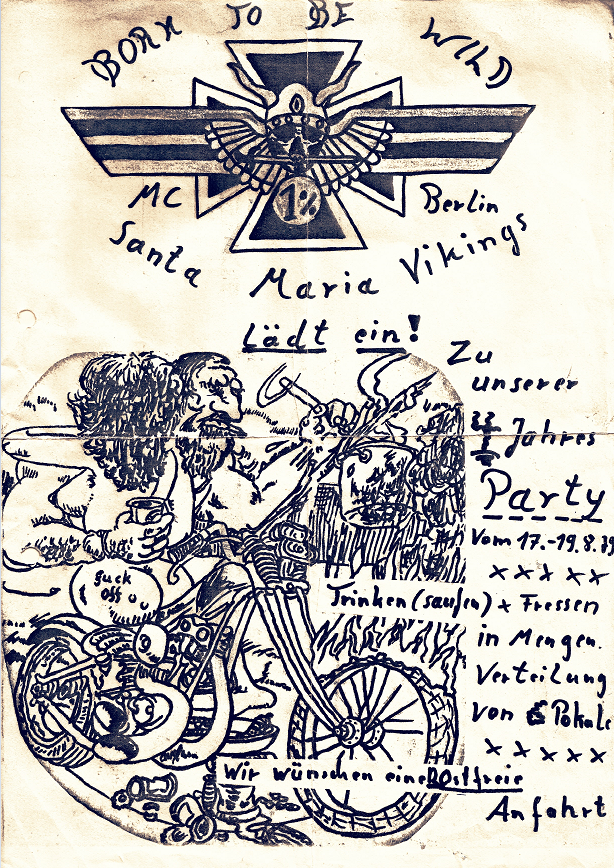 BORN TO BE WILD
1%
MC Berlin
Santa Maria Vikings
Lädt ein!
Zu
unserer
Jahres
Party
Vom 17.-19.8.89
x x x x x
Trinken (saufen) x Fressen
in Mengen.
Verteilung
von Pokale
x x x x x
fuck
off
Wir wünschen eine Rostfreie
Anfahrt